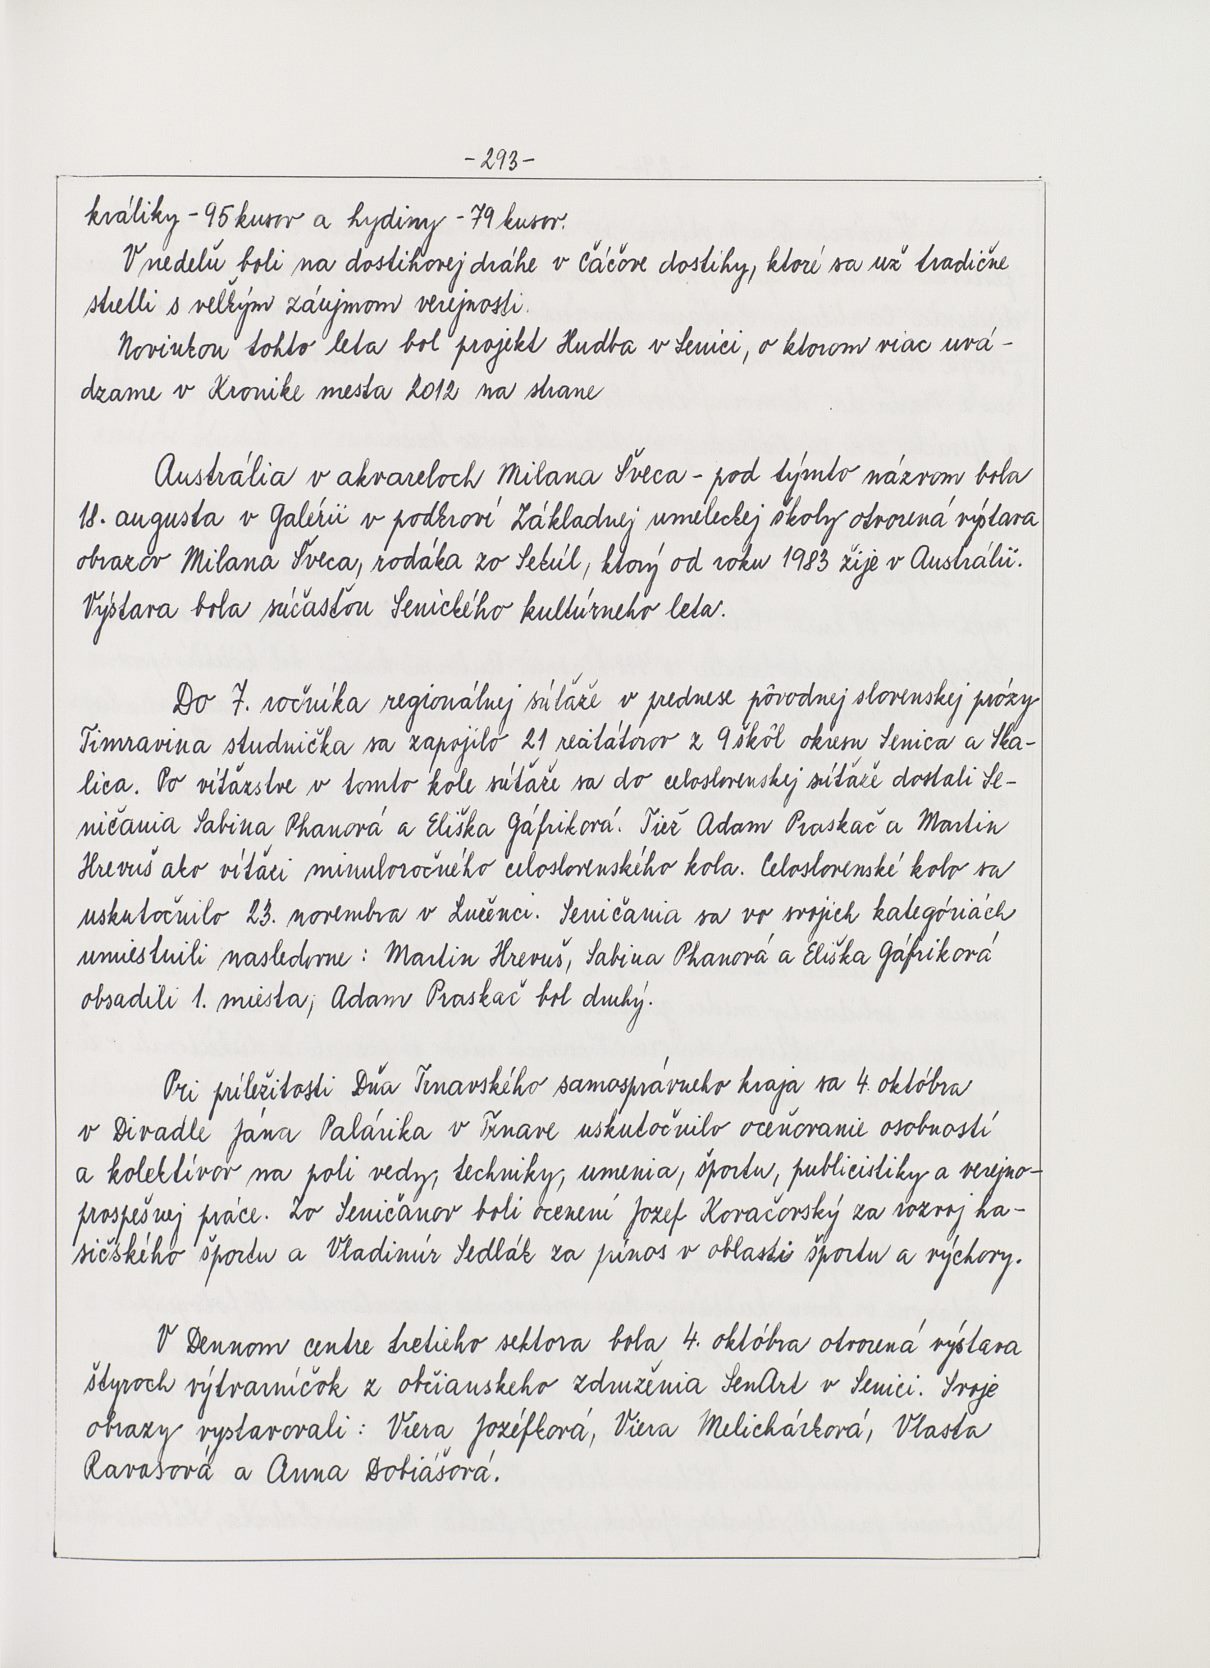 -293-
králiky - 95 kusov a hydiny - 79 kusov.
V nedeľu boli na dostihovej dráhe v Čáčove dostihy, ktoré sa už tradične
stretli s veľkým záujmom verejnosti.
Novinkou tohto leta bol projekt Hudba v Senici, o ktorom viac uvá-
dzame v Kronike mesta 2012 na strane
Austrália v akvareloch Milana Šveca - pod týmto názvom bola
18. augusta v Galérii v podkroví Základnej umeleckej školy otvorená výstava
obrazov Milana Šveca, rodáka zo Sekúl, ktorý od roku 1983 žije v Austrálii.
Výstava bola súčasťou Senického kultúrneho leta.
Do 7. ročníka regionálnej súťaže v prednese pôvodnej slovenskej prózy
Timravina studnička sa zapojilo 21 recitátorov z 9 škôl okresu Senica a Ska-
lica. Po víťazstve v tomto kole súťaže sa do celoslovenskej súťaže dostali Se-
ničania Sabina Phanová a Eliška Gáfriková. Tiež Adam Praskač a Martin
Hrevuš ako víťazi minuloročného celoslovenského kola. Celoslovenské kolo sa
uskutočnilo 23. novembra v Lučenci. Seničania sa vo svojich kategóriách
umiestnili nasledovne: Martin Hrevuš, Sabina Phanová a Eliška Gáfriková
obsadili 1. miesta, Adam Praskač bol druhý.
Pri príležitosti Dňa Trnavského samosprávneho kraja sa 4. októbra
v Divadle Jána Palárika v Trnave uskutočnilo oceňovanie osobností
a kolektívov na poli vedy, techniky, umenia, športu, publicistiky a verejno-
prospešnej práce. Zo Seničanov boli ocenení Jozef Kovačovský za rozvoj ha-
sičského športu a Vladimír Sedlák za prínos v oblasti športu a výchovy.
V Dennom centre tretieho sektora bola 4. októbra otvorená výstava
štyroch výtvarníčok z občianskeho združenia SenArt v Senici. Svoje
obrazy vystavovali: Viera Jozéfková, Viera Melichárková, Vlasta
Ravasová a Anna Dobiášová.